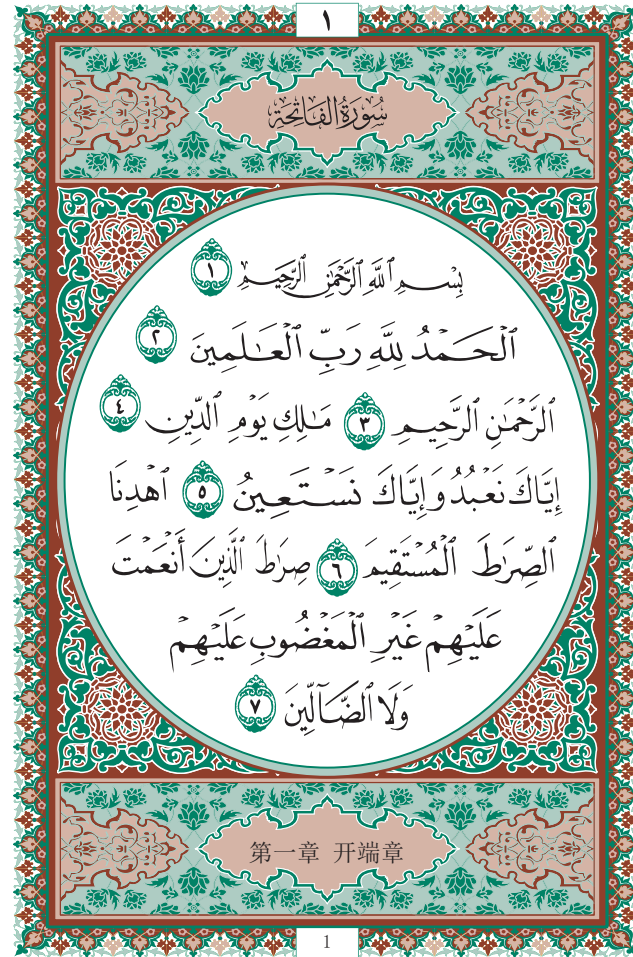 ١
سُورَةُ الفَاتِحَةِ
بِسْمِ ٱللَّهِ ٱلرَّحْمَٰنِ ٱلرَّحِيمِ ١
ٱلْحَمْدُ لِلَّهِ رَبِّ ٱلْعَٰلَمِينَ ٢
ٱلرَّحْمَٰنِ ٱلرَّحِيمِ ٣ مَٰلِكِ يَوْمِ ٱلدِّينِ ٤
إِيَّاكَ نَعْبُدُ وَإِيَّاكَ نَسْتَعِينُ ٥ ٱهْدِنَا
ٱلصِّرَٰطَ ٱلْمُسْتَقِيمَ ٦ صِرَٰطَ ٱلَّذِينَ أَنْعَمْتَ
عَلَيْهِمْ غَيْرِ ٱلْمَغْضُوبِ عَلَيْهِمْ
وَلَا ٱلضَّآلِّينَ ٧
第一章 开端章
1